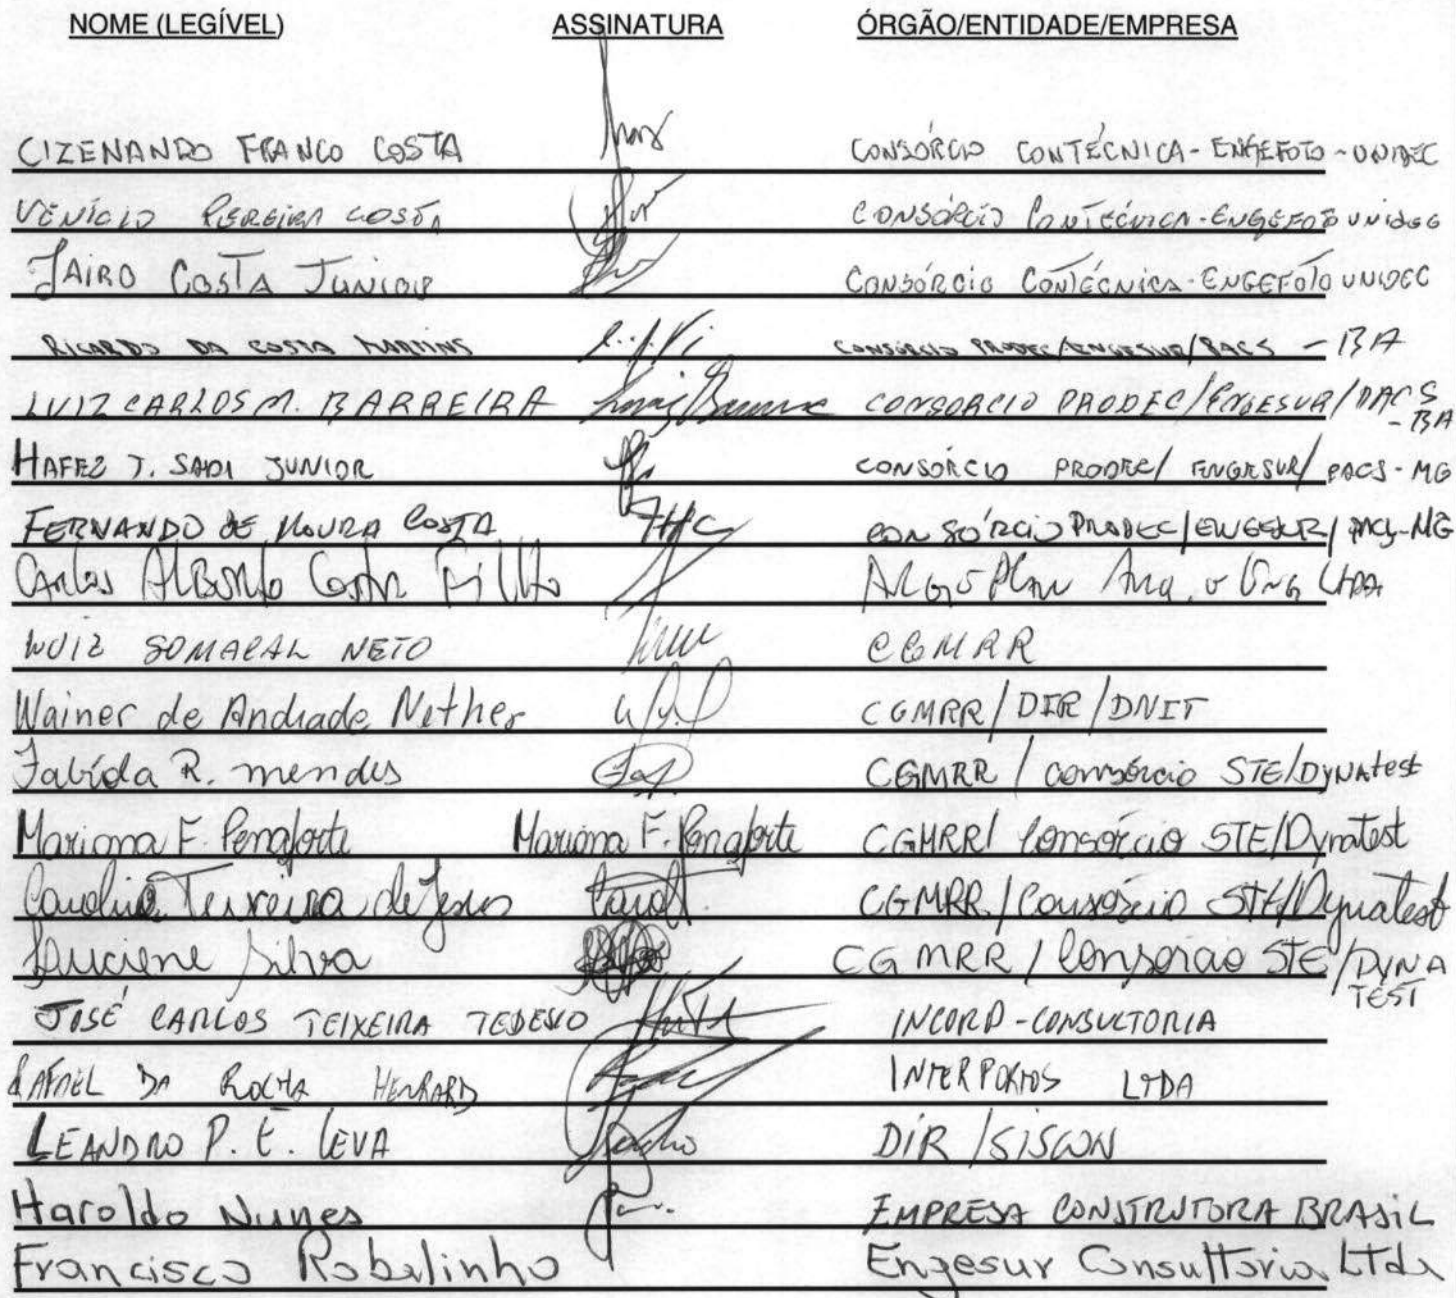 NOME (LEGÍVEL) ASSINATURA ÓRGÃO/ENTIDADE/EMPRESA
CIZENANDO FRANCO COSTA CONSÓRCIO CONTÉCNICA - ENGEFOTO - UNIDEC
VENÍCIO PEREIRA COSTA CONSÓRCIO CONTÉCNICA - ENGEFOTO UNIDEC
JAIRO COSTA JUNIOR CONSÓRCIO CONTÉCNICA - ENGEFOTO UNIDEC
RICARDO DA COSTA MARTINS CONSORCIO PRODEC/ENGESUR/PACS - BA
LUIZ CARLOS M. BARREIRA CONSORCIO PRODEC/ENGESUR/PACS - BA
HAFEZ J. SADI JUNIOR CONSÓRCIO PRODEC/ENGESUR/PACS - MG
FERNANDO DE MOURA COSTA FMC CONSÓRCIO PRODEC/ENGESUR/PACS-MG
Carlos Alberto Costa Filho LTDA
LUIZ SOMACAL NETO CGMRR
Wainer de Andrade Nether CGMRR/DIR/DNIT
Fabíola R. mendes CGMRR / consórcio STE/DYNAtest
Mariana F. Penaforte Mariana F. Penaforte CGMRR/ Consórcio STE/Dynatest
Caroline Teixeira de Jesus CGMRR/Consórcio STE/Dynatest
Luciene Silva CGMRR / Consórcio STE/DYNA
TEST
JOSÉ CARLOS TEIXEIRA TEDESCO INCORP - CONSULTORIA
RAFAEL DA ROCHA HENRARD INTERPORTOS LTDA
LEANDRO P. E. LEVA DIR /SISCON
Haroldo Nunes EMPRESA CONSTRUTORA BRASIL
Francisco Robalinho Engesur Consultoria Ltda